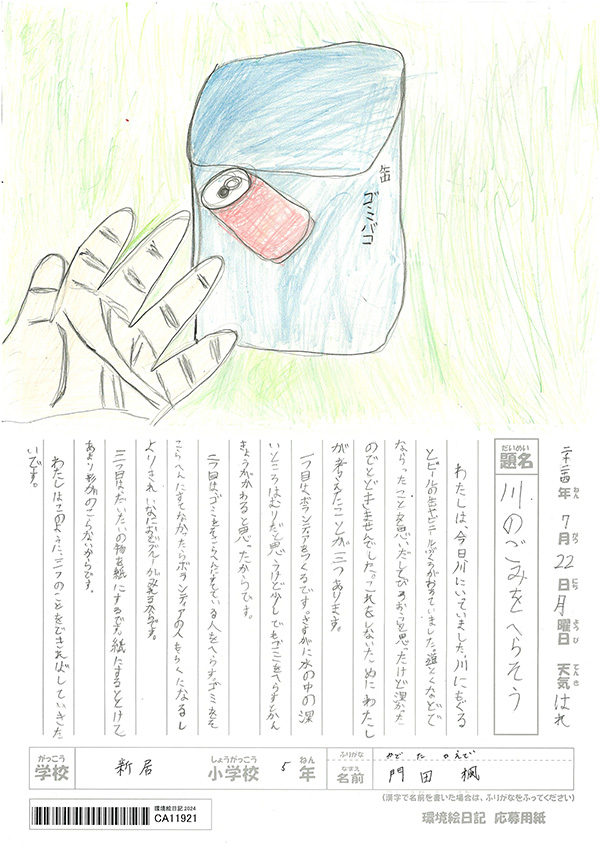 缶
ゴミバコ
二千二十四年 7月22日月曜日 天気はれ
ねん がつ にち ようび てんき
だいめい
題名
川のごみをへらそう
わたしは、今日川にいていました。川にもぐる
とビールの缶やビニールぶくろがおちていました。道とくなどで
ならったことを思いだしてひろおうと思ったけど深かった
のでとどきませんでした。これをしないためにわたし
が考えたことが三つあります。
一つ目は、ボランティアをつくるです。さすがに水の中の深
いところはむりだと思うけど少しでもゴミをへらすとかん
きょうがかわると思ったからです。
二つ目は、ゴミをそこらへんにすてている人をへらす。ゴミをそ
こらへんにすてなかったらボランティアの人もらくになるし
よりきれいな
三つ目は、だいたいの物を紙にするです。紙にするととけて
あまり形がのこらないからです。
わたしはこのように、三つのことをできればしていきた
いです。
がっこう
学校
新居
しょうがっこう
小学校
5
ねん
年
ふりがな
かどた かえで
なまえ
名前
門田 楓
(漢字で名前を書いた場合は、ふりがなをふってください)
環境絵日記2024
CA11921
環境絵日記 応募用紙